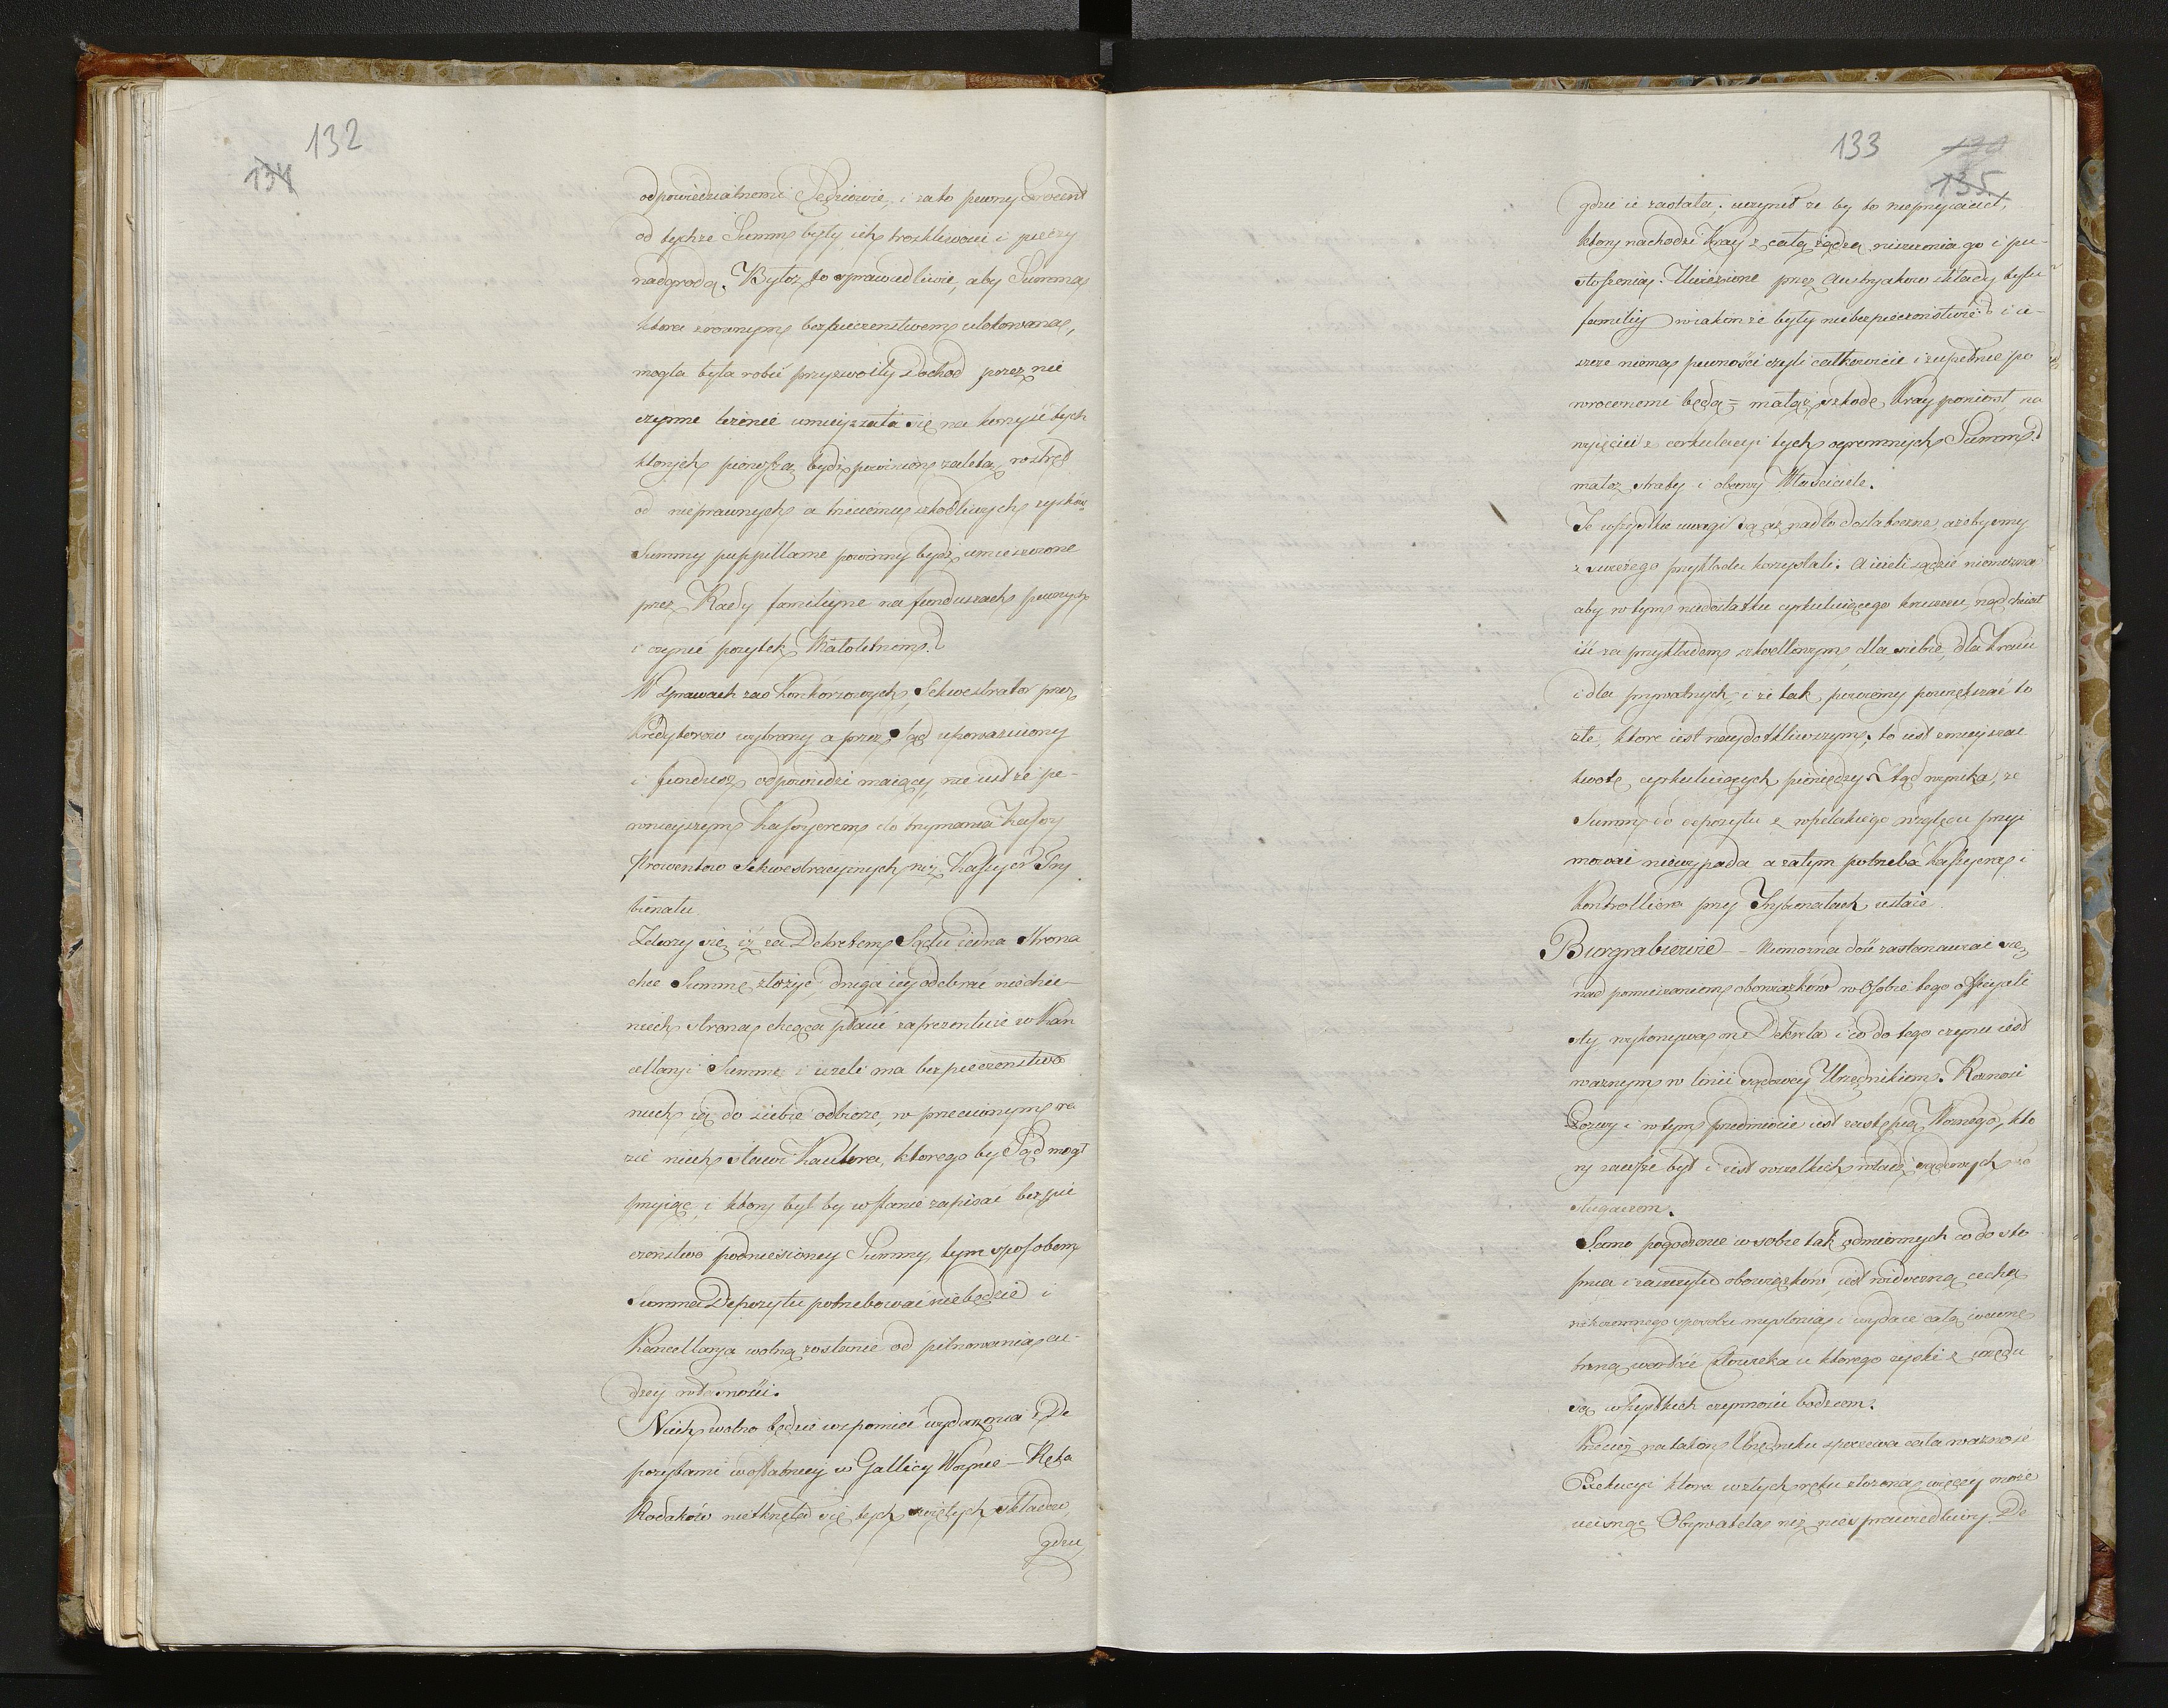 132
134
odpowiedzialnemi Sędziowie, i zato pewny Procent
od tychże Summ były ich troskliwości i pieczy
nadgrodą. Byłoż to sprawiedliwie, aby Summa
ktora zrownym bezpieczenstwem ulokowana,
mogła była robić przyzwoity dochod przez nie
czynne leżenie umnieyszała się na korzyść tych
ktorych pierwszą bydź powinno zaletą, wstręt
od nieprawnych a trzeciemu szkodliwych zyskow
Summy puppillarne powinny bydź umieszczone
przez Rady familiyne na funduszach pewnych
i czynić pożytek Małoletnem.
W Sprawach zaś Konkursowych, Sekwestrator przez
Kredytorow wybrany a przez Sąd upoważniony
i fundusz odpowiedzi maiący, nie iest że pe-
wnieyszym Kassyerem do trzymania Kassy
Prowentow Sekwestracyinych niż Kassyer Try
bunału
Zdarzy się iż za Dekretem Sądu iedna Strona
chce Summę złożyć, druga iey odebrać niechce—
niech strona chcąca płacić zaprezentuie w Kan
cellaryi Summę i ieżeli ma bezpieczenstwo
niech ią do siebie odbierze, w przeciwnym ra
zie niech stawi Kautora, ktorego by Sąd mogł
przyiąć, i ktory był by w stanie zapisać bezpie
czeństwo podniesioney Summy, tym sposobem
Summa Depozytu potrzebować niebędzie i
Kancellarya wolną zostanie od pilnowania cu-
dzey własności.
Niech wolno będzie wspomieć wydarzenia z De
pozytami w ostatniey w Gallicy Woynie — Ręka
Rodaków nietknęła się tych świętych składow,
gdzie
133
130
135
gdzie ie zastała; uczynił że by to nieprzyiaciel,
ktory nachodzi Kray z całą żądzą niszczenia go i pu-
stoszenia. Uwiezione przez Austryakow składy tylu
familiy w iakimże były niebezpieczeństwie i ie-
szcze niema pewności czyli całkowicie i zupełnie po
wroconemi będą = małąż szkodę Kray poniosł na
wyięciu z cerkulacyi tych ogromnych Summ.
małoż straty i obawy Właściciele.
Te wszystkie uwagi są aż nadto dostateczne, azebysmy
z swieżego przykładu korzystali. A ieżeli sądzić niemożna
aby w tym niedostatku cyrkuluiącego kruszcu, rząd chciał
iść za przykładem szkodliwym, dla siebie, dla Kraiu
i dla prywatnych, i że tak powiemy powiększać to
złe, ktore iest naydotkliwszym, to iest zmnieyszać
kwotę cyrkuluiących pieniędzy. Ztąd wynika, że
Summ do depozytu z wszelakiego względu przyi
mować niewypada a zatym potrzeba Kassyera i
Kontrollera przy Trybunałach ustaie.
Burgrabiowie — Niemożna dość zastanawiać się
nad pomieszaniem obowiązków w Osobie tego officyali
sty, wykonywa on Dekreta i co do tego czynu iest
ważnym w linii sądowey Urzędnikiem. Roznosi
Pozwy i w tym przedmiocie iest zastępcą Woznego, kto
ry zawsze był i iest wszelkich władz sądowych po
sługaczem.
Samo pogodzenie w sobie tak odmiennych co do sto
pnia i zaszczytu obowiązków, iest widoczną cechą
nikczemnego sposobu myslenia, i wydaie całą wewnę
trzną wartość człowieka u ktorego zyski z urzędu
są wszystkich czynności bodzcem.
Przecięż na takim Urzędniku spoczywa cała ważność
Exekucyi ktora w złych ręku złożona, więcey może
ucisnąć Obywatela niż niesprawiedliwy De